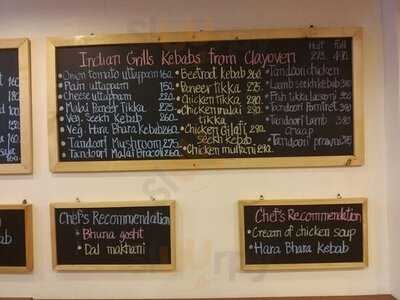 Indian Grills Kebabs from Clayoven
Half Full
275 490
Onion tomato uttappam 160
Plain uttappam 150
Cheese uttappam
Malai Paneer Tikka 275
Veg. Seekh Kebab 260
Veg. Hara Bhara Kebab 260
Tandoori Mushroom 275
Tandoori Malai Brocoli 260
Beetroot kebab 260
Paneer tikka 275
Chicken tikka
Chicken malai
tikka
Chicken Gilafi
seekh kebab
Chicken multani
Tandoori chicken
Lamb seekh kebab
Fish tikka
Tandoori Pomfret
Tandoori Lamb
chaap
Tandoori prawns
Chef's Recommendation
Bhuna gosht
Dal makhani
Chef's Recommendation
Cream of chicken soup
Hara Bhara Kebab